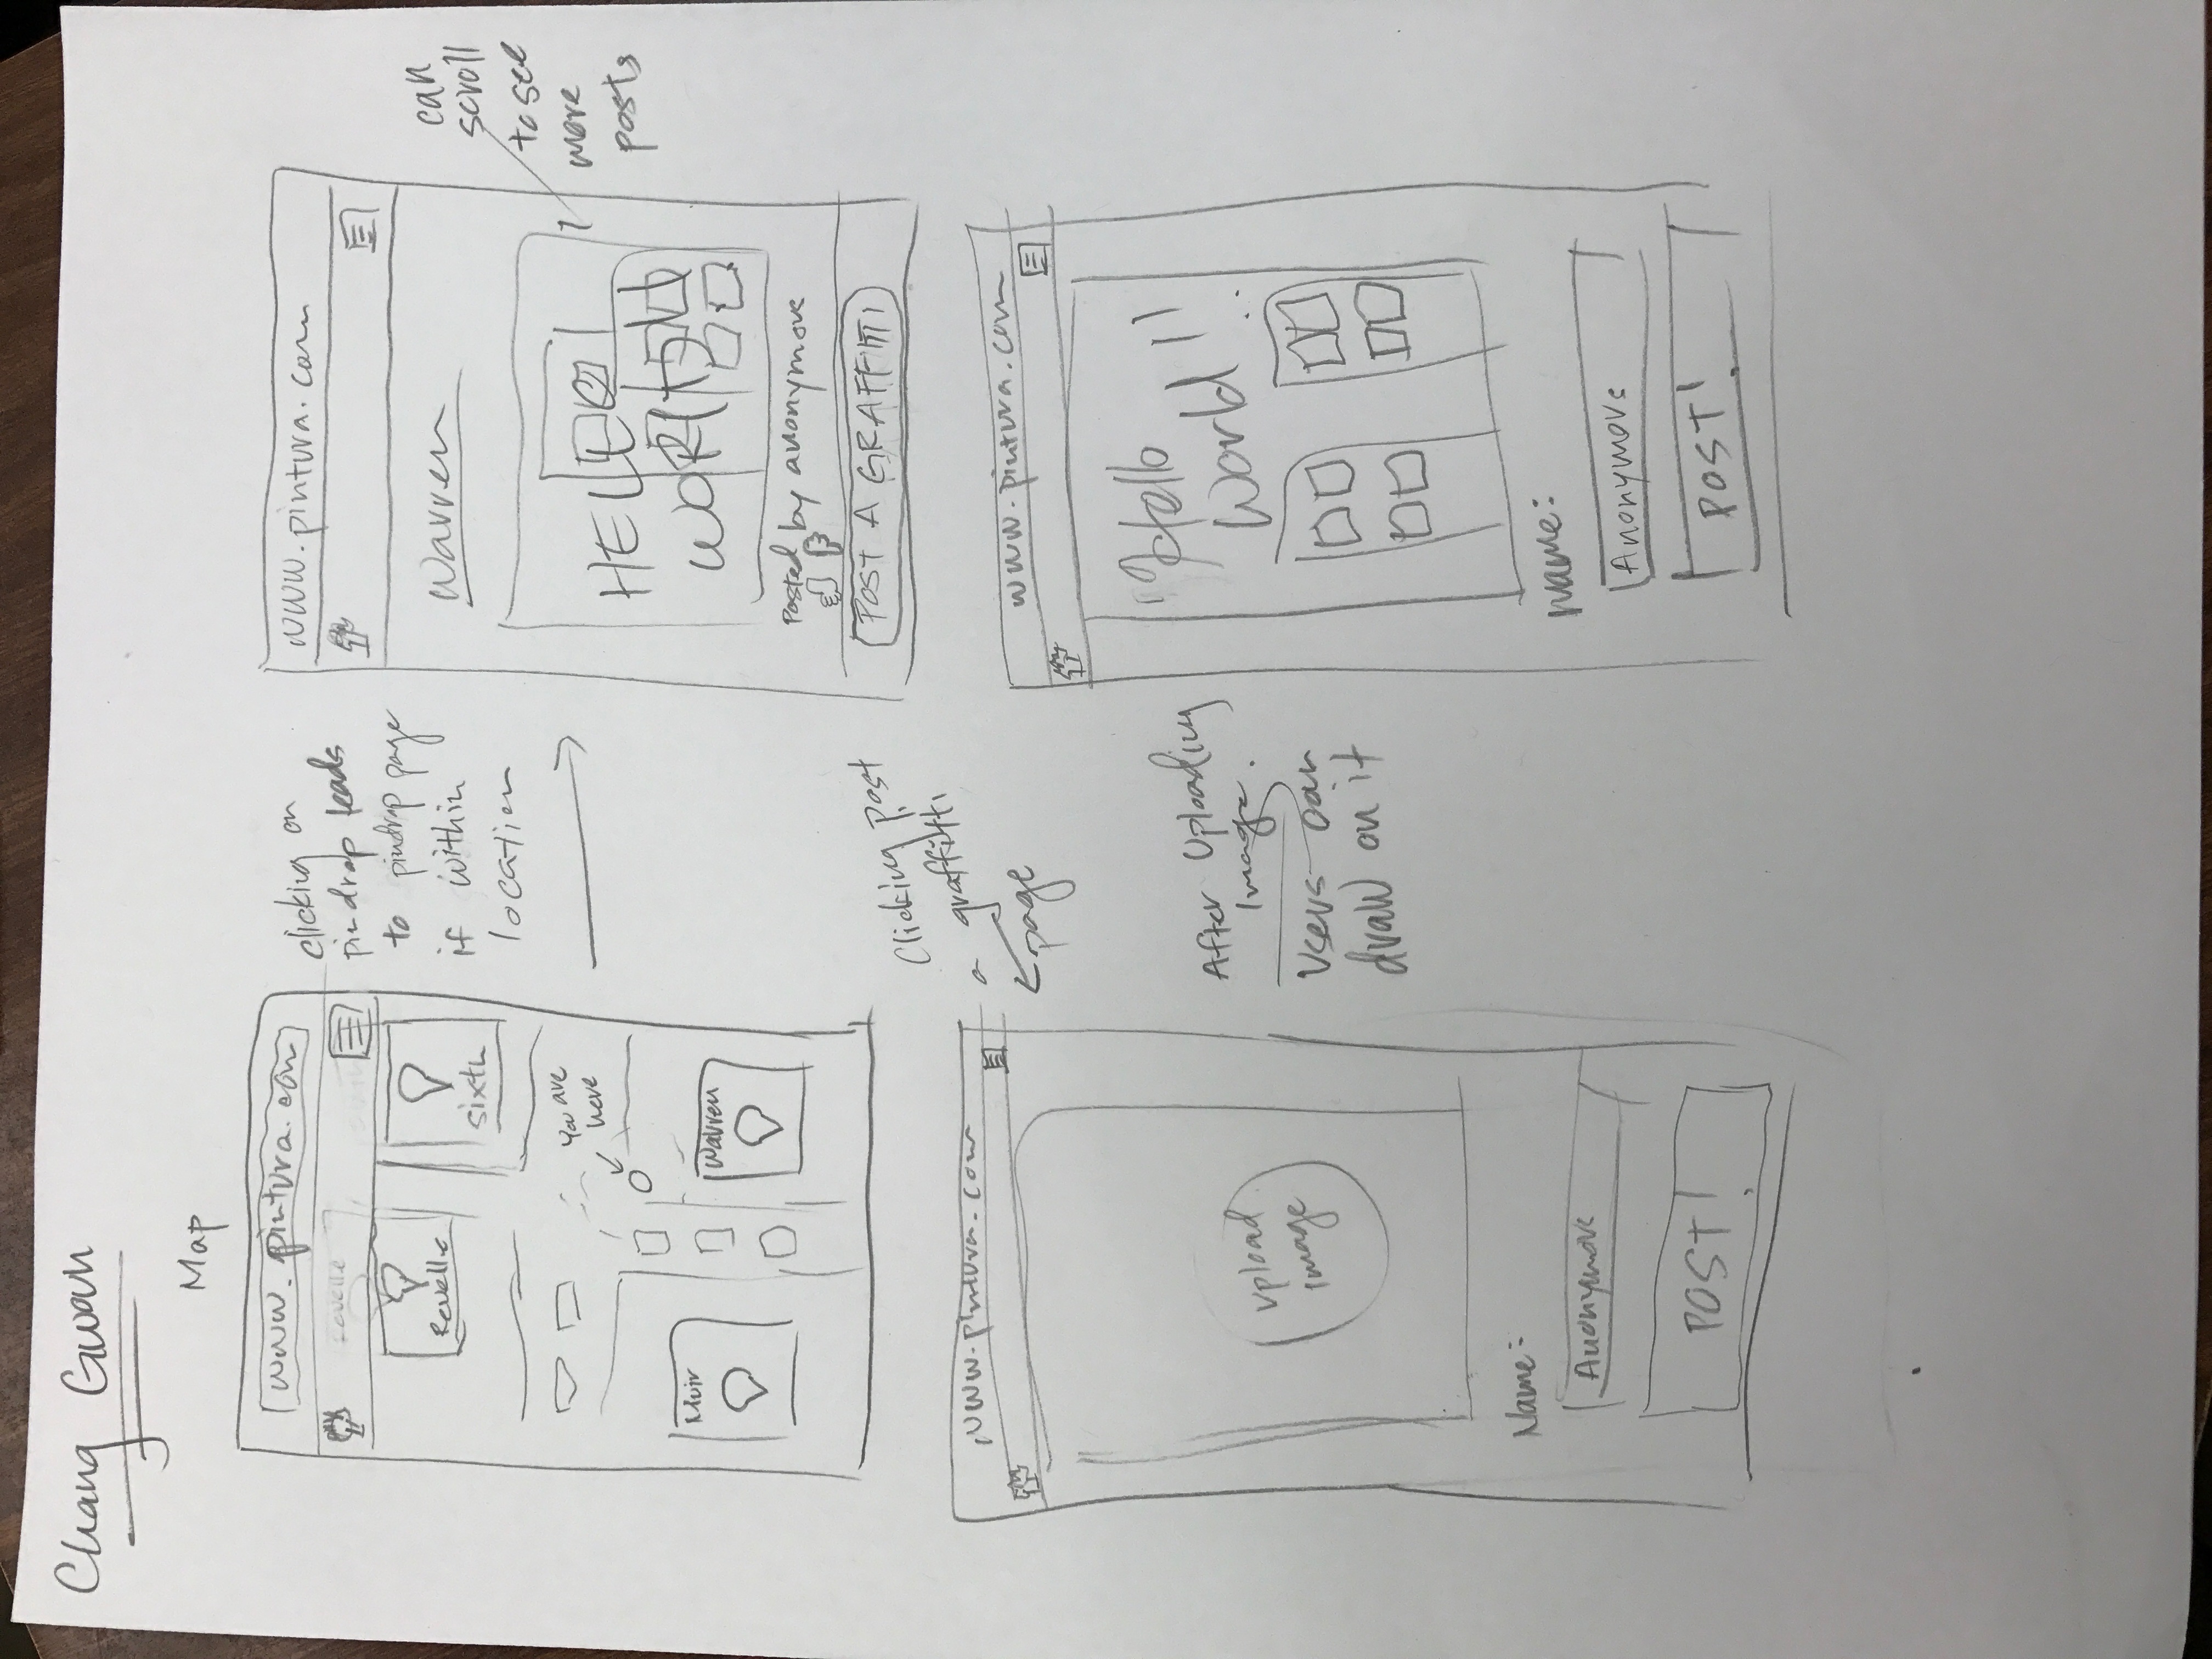 Chang Gwan
Map
www.pintura.com
Revelle
Revelle
sixth
You are
here
Muir
Warren
clicking on
pindrop leads
to pindrop page
if within
location
www.pintura.com
Warren
HELLO
WORLD
Posted by anonymous
POST A GRAFFITTI
can
scroll
to see
more
posts
Clicking post
a graffitti
page
www.pintura.com
Upload
image
Name:
Anonymous
POST!
After Uploading
Image.
Users can
draw on it
www.pintura.com
Hello
World!!
Name:
Anonymous
POST!